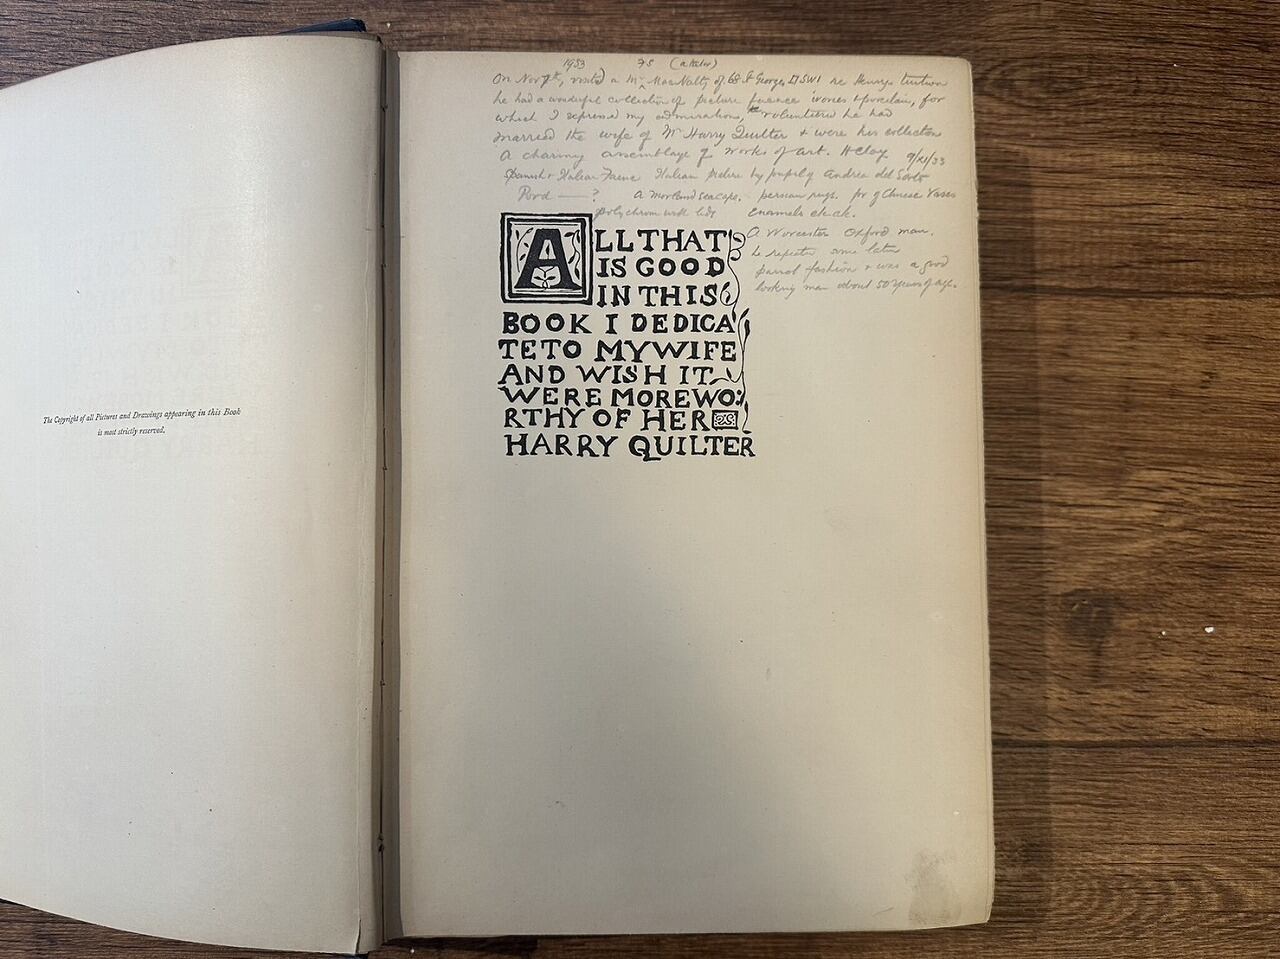 The Copyright of all Pictures and Drawings appearing in this Book
is most strictly reserved.
1933 (a tutor)
On Nov 7th, visited a Mr MacNalty of 68 St Georges SW1 re Henrys tuition
he had a wonderful collection of picture faience ivories & porcelain, for
which I expressed my admiration, he volunteered he had
married the wife of Mr Harry Quilter & were his collection
A charming assemblage of works of art. H Clay 9/XI/33
Spanish & Italian Faience Italian picture by pupil of Andrea del Sarto
? A Morland seascape. persian rugs. pr of Chinese Vases
polychrome with lids enamels etc etc.
A Worcester Oxford man.
he repeated some latin
parrot fashion & was a good
looking man about 50 years of age.
ALL THAT
IS GOOD
IN THIS
BOOK I DEDICA
TE TO MY WIFE
AND WISH IT
WERE MORE WO:
RTHY OF HER
HARRY QUILTER